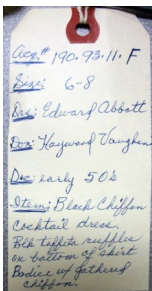 Acq.# 190.93.11.F
Size: 6-8
Des: Edward Abbott
Don: Haywood Vaughen
De: early 50's
Item: Black Chiffon
cocktail dress.
Blk taffeta ruffles
on bottom of skirt
Bodice w/ gathered
chiffon.